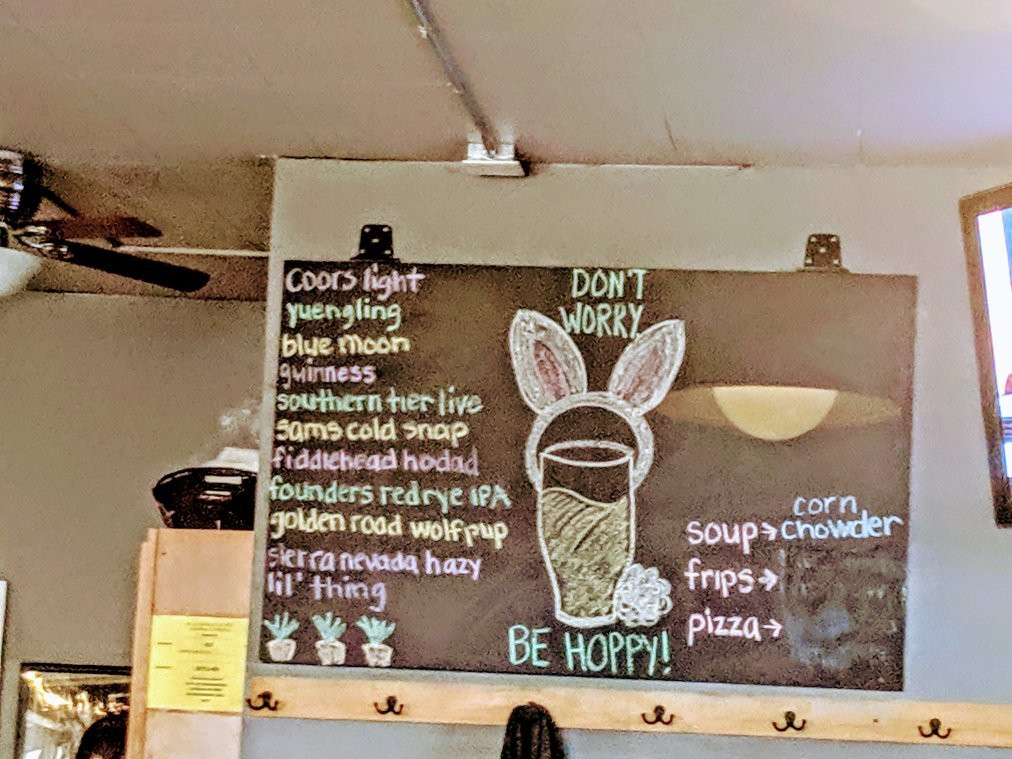 coors light
yuengling
blue moon
guinness
southern tier live
sams cold snap
fiddlehead hodad
founders red rye IPA
golden road wolfpup
sierra nevada hazy
lil' thing
DON'T
WORRY
BE HOPPY!
corn
soup→chowder
frips→
pizza→